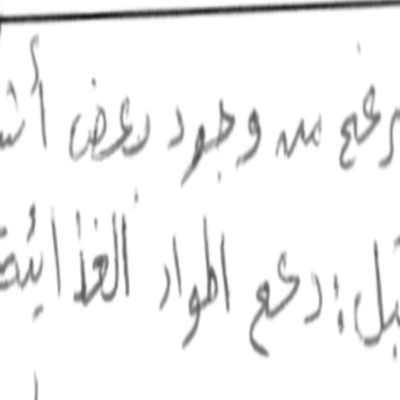 رغم من وجود بعض أشـ
ـبل: دعم المواد الغذائية